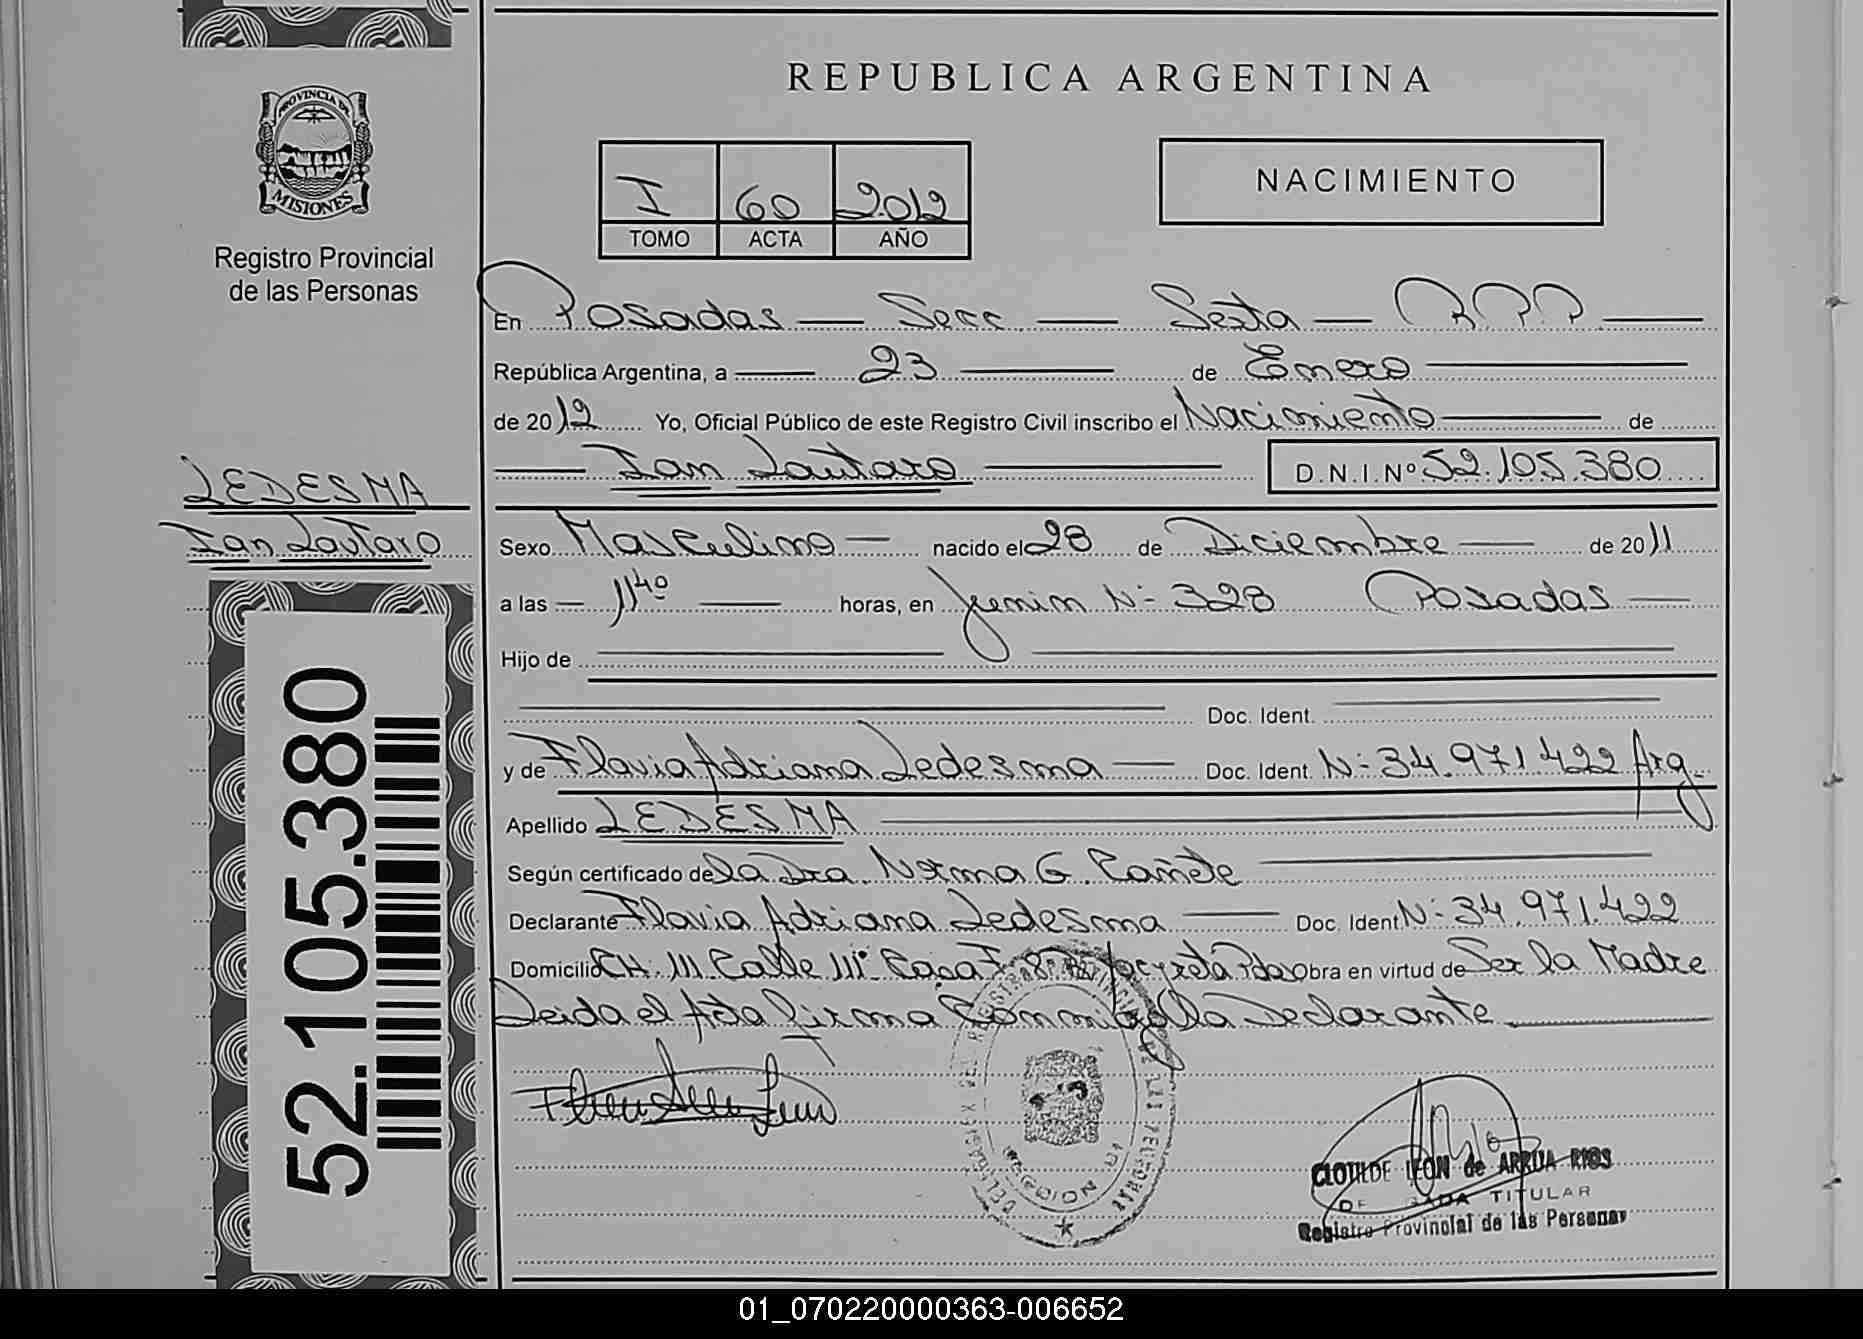 PROVINCIA DE
MISIONES
Registro Provincial
de las Personas
REPUBLICA ARGENTINA
NACIMIENTO
I 60 2012
TOMO ACTA AÑO
En Posadas — Secc — Sexta — R.P.P.
República Argentina, a — 23 — de Enero
de 2012 Yo, Oficial Público de este Registro Civil inscribo el Nacimiento — de
Ian Lautaro D.N.I.Nº 52.105.380
LEDESMA
Ian Lautaro
Sexo Masculino — nacido el 28 de Diciembre — de 2011
a las — 11 40 — horas, en Junin Nº 328 Posadas —
Hijo de
Doc. Ident.
y de Flavia Adriana Ledesma — Doc. Ident. Nº 34.971.422 Arg.
Apellido LEDESMA
Según certificado de la Dra. Norma G. Cañete
Declarante Flavia Adriana Ledesma — Doc. Ident. Nº 34.971.422
Domicilio CH. 111 Calle 111 Casa Pdas Obra en virtud de Ser la Madre
Leida el Acta firma Conmigo la Declarante
52.105.380
REGION
CLOTILDE LEON de ARRUA RIOS
TITULAR
Registro Provincial de las Personas
01_070220000363-006652